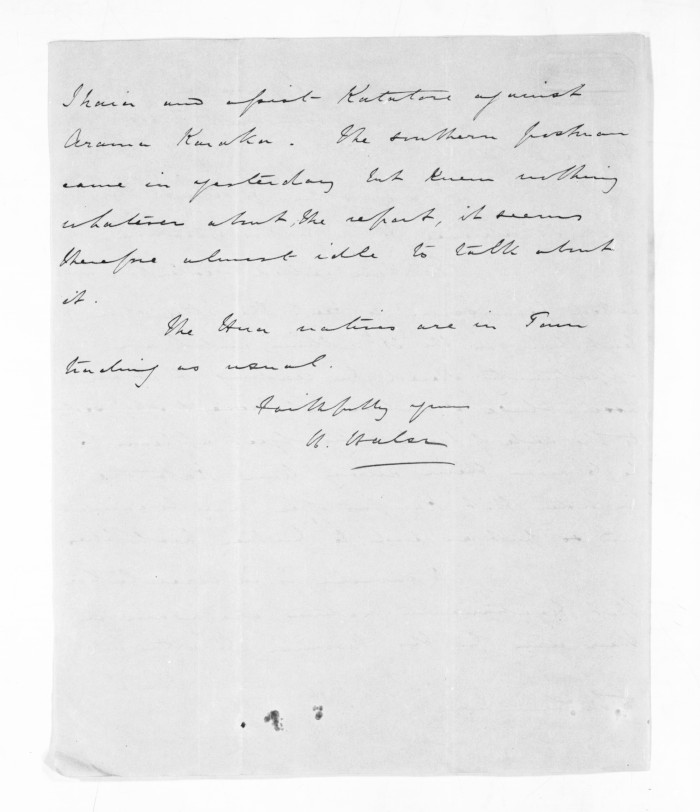 Ihaia and assist Katatore against
Arama Karaka. The southern postman
came in yesterday but knew nothing
whatever about the report, it seems
therefore almost idle to talk about
it.
The Hua natives are in Town
trading as usual.
Faithfully yours
H. Halse